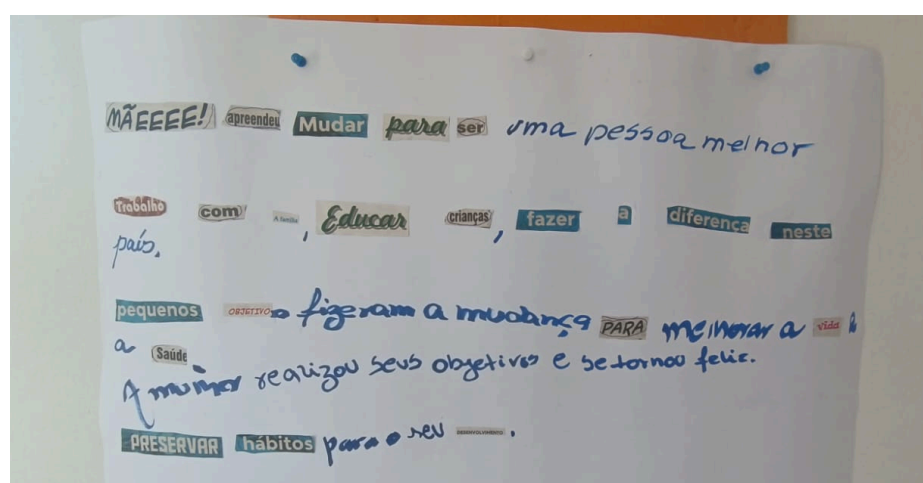 MÃEEEE! apreendeu Mudar para ser uma pessoa melhor
Trabalho com A família, Educar crianças, fazer a diferença neste
país.
pequenos OBJETIVOs fizeram a mudança PARA melhorar a vida e
a Saúde
A mulher realizou seus objetivos e se tornou feliz.
PRESERVAR hábitos para o seu DESENVOLVIMENTO.